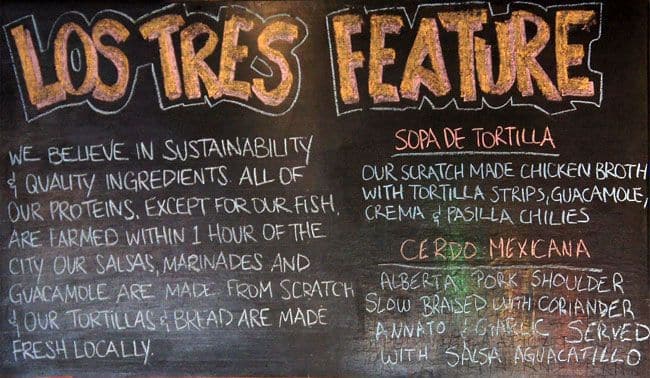 LOS TRES
WE BELIEVE IN SUSTAINABILITY
& QUALITY INGREDIENTS ALL OF
OUR PROTEINS, EXCEPT FOR OUR FISH,
ARE FARMED WITHIN 1 HOUR OF THE
CITY OUR SALSAS, MARINADES AND
GUACAMOLE ARE MADE FROM SCRATCH
& OUR TORTILLAS & BREAD ARE MADE
FRESH LOCALLY.
FEATURE
SOPA DE TORTILLA
OUR SCRATCH MADE CHICKEN BROTH
WITH TORTILLA STRIPS, GUACAMOLE,
CREMA & PASILLA CHILIES
CERDO MEXICANA
ALBERTA PORK SHOULDER
SLOW BRAISED WITH CORIANDER
ANNATO & GARLIC SERVED
WITH SALSA AGUACATILLO